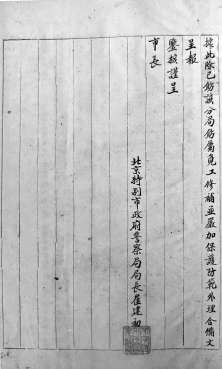 據此除已飭該分局飭屬覓工修補並嚴加保護防範外理合備文
呈報
鑒核謹呈
市長
北京特別市政府警察局局長崔建初